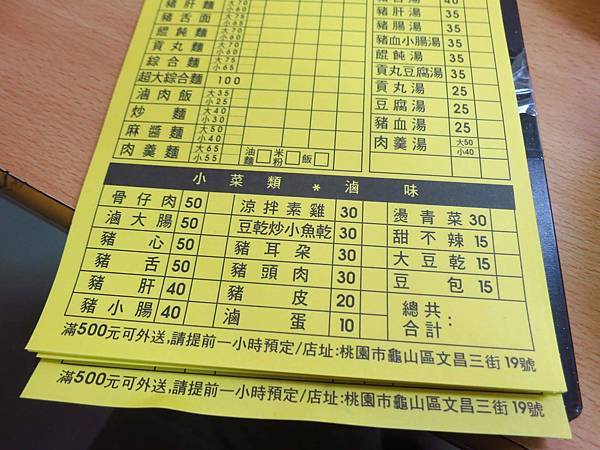 豬肝麵 大70 小60
豬舌面 大70 小60
餛飩麵 大70 小60
貢丸麵 大70 小60
綜合麵 大75 小65
超大綜合麵 100
滷肉飯 大35 小25
炒麵 大40 小30
麻醬麵 大50 小40
肉羹麵 大65 小55
油麵 米粉 飯
40
豬肝湯 35
豬腸湯 35
豬血小腸湯 35
餛飩湯 35
貢丸豆腐湯 35
貢丸湯 25
豆腐湯 25
豬血湯 25
肉羹湯 大50 小40
小菜類 * 滷味
骨仔肉 50
滷大腸 50
豬心 50
豬舌 50
豬肝 40
豬小腸 40
涼拌素雞 30
豆乾炒小魚乾 30
豬耳朵 30
豬頭肉 30
豬皮 20
滷蛋 10
燙青菜 30
甜不辣 15
大豆乾 15
豆包 15
總共合計:
滿500元可外送,請提前一小時預定/店址:桃園市龜山區文昌三街19號
滿500元可外送,請提前一小時預定/店址:桃園市龜山區文昌三街19號